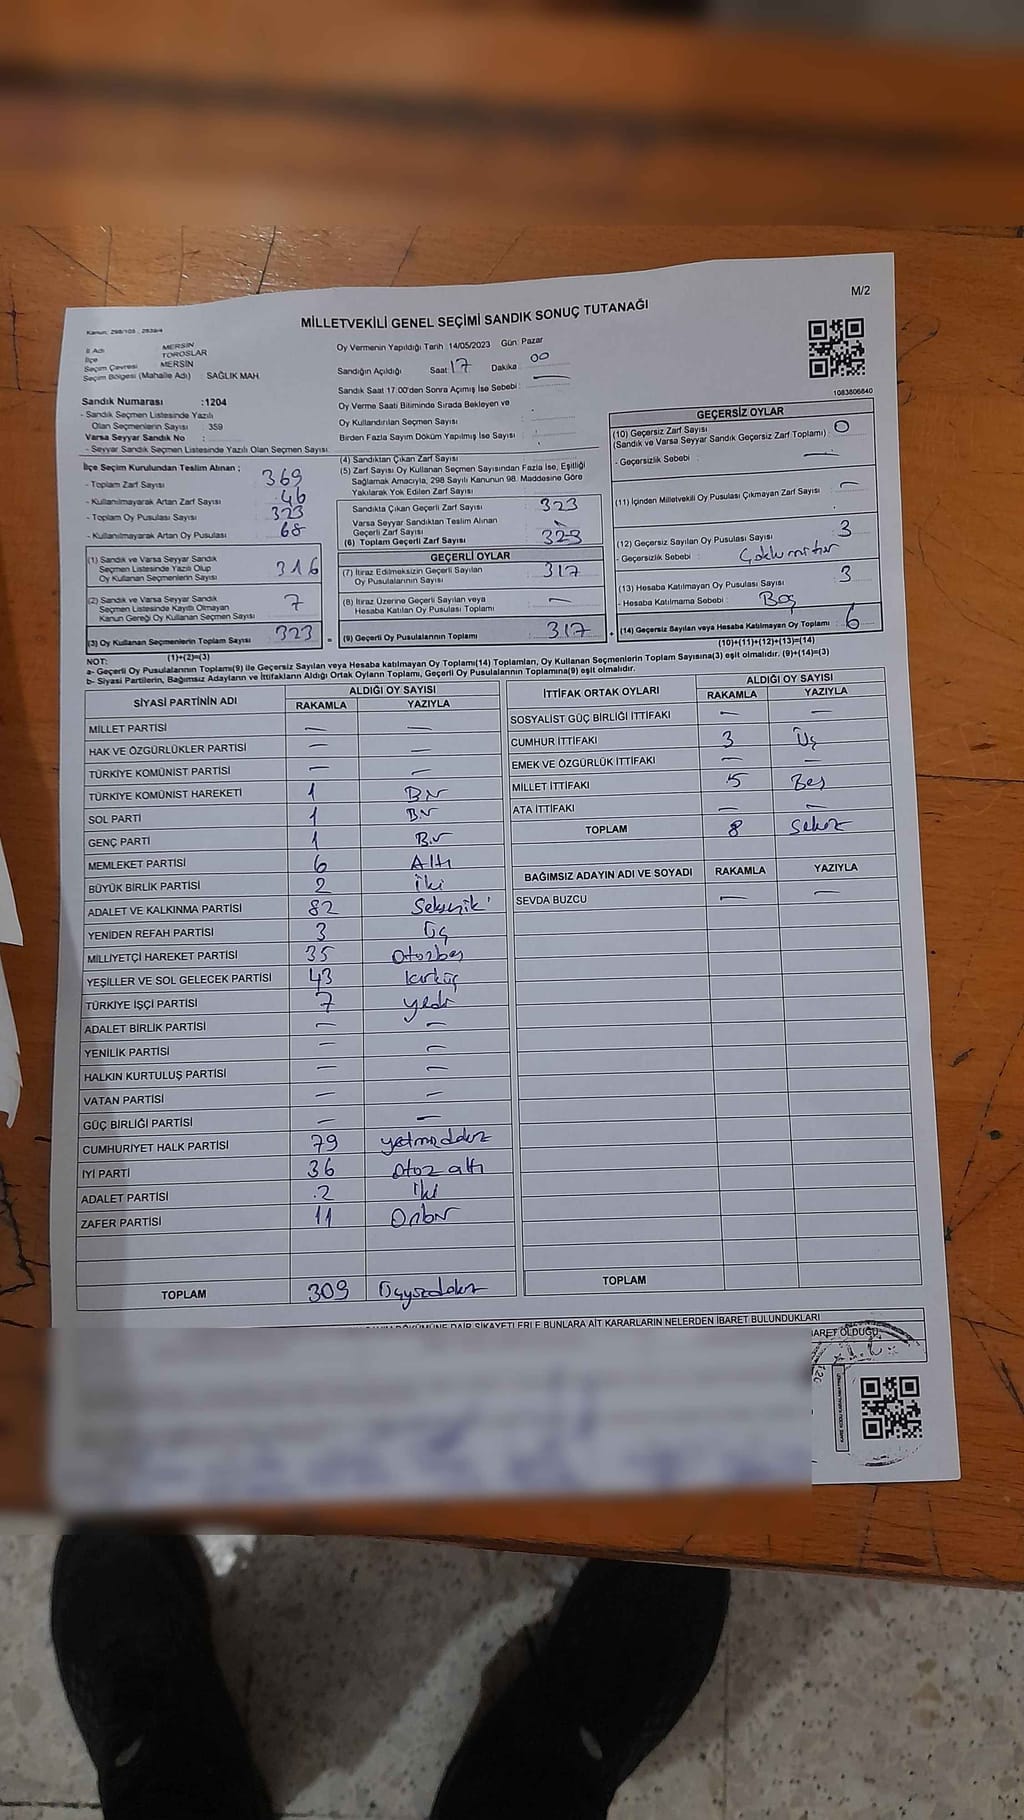 M/2
MİLLETVEKİLİ GENEL SEÇİMİ SANDIK SONUÇ TUTANAĞI
Kanun: 298/105 , 2839/4
İl Adı MERSİN
İlçe TOROSLAR
Seçim Çevresi MERSİN
Seçim Bölgesi (Mahalle Adı) : SAĞLIK MAH.
Sandık Numarası :1204
- Sandık Seçmen Listesinde Yazılı
Olan Seçmenlerin Sayısı : 359
Varsa Seyyar Sandık No :
- Seyyar Sandık Seçmen Listesinde Yazılı Olan Seçmen Sayısı
Oy Vermenin Yapıldığı Tarih :14/05/2023 Gün: Pazar
Sandığın Açıldığı Saat: 17 Dakika : 00
Sandık Saat 17:00'den Sonra Açımış İse Sebebi : —
Oy Verme Saati Bitiminde Sırada Bekleyen ve
Oy Kullandırılan Seçmen Sayısı :
Birden Fazla Sayım Döküm Yapılmış İse Sayısı :
1083806840
İlçe Seçim Kurulundan Teslim Alınan ;
- Toplam Zarf Sayısı 369
- Kullanılmayarak Artan Zarf Sayısı 46
- Toplam Oy Pusulası Sayısı 323
- Kullanılmayarak Artan Oy Pusulası 68
(1) Sandık ve Varsa Seyyar Sandık
Seçmen Listesinde Yazılı Olup
Oy Kullanan Seçmenlerin Sayısı 316
(2) Sandık ve Varsa Seyyar Sandık
Seçmen Listesinde Kayıtlı Olmayan
Kanun Gereği Oy Kullanan Seçmen Sayısı 7
(3) Oy Kullanan Seçmenlerin Toplam Sayısı 323
(1)+(2)=(3)
(4) Sandıktan Çıkan Zarf Sayısı
(5) Zarf Sayısı Oy Kullanan Seçmen Sayısından Fazla İse, Eşitliği
Sağlamak Amacıyla, 298 Sayılı Kanunun 98. Maddesine Göre
Yakılarak Yok Edilen Zarf Sayısı
Sandıkta Çıkan Geçerli Zarf Sayısı : 323
Varsa Seyyar Sandıktan Teslim Alınan
Geçerli Zarf Sayısı :
(6) Toplam Geçerli Zarf Sayısı : 323
GEÇERLİ OYLAR
(7) İtiraz Edilmeksizin Geçerli Sayılan
Oy Pusulalarının Sayısı : 317
(8) İtiraz Üzerine Geçerli Sayılan veya
Hesaba Katılan Oy Pusulası Toplamı : —
(9) Geçerli Oy Pusulalarının Toplamı : 317
GEÇERSİZ OYLAR
(10) Geçersiz Zarf Sayısı
(Sandık ve Varsa Seyyar Sandık Geçersiz Zarf Toplamı) : 0
- Geçersizlik Sebebi : —
(11) İçinden Milletvekili Oy Pusulası Çıkmayan Zarf Sayısı : —
(12) Geçersiz Sayılan Oy Pusulası Sayısı : 3
- Geçersizlik Sebebi :
(13) Hesaba Katılmayan Oy Pusulası Sayısı : 3
- Hesaba Katılmama Sebebi : Boş
(14) Geçersiz Sayılan veya Hesaba Katılmayan Oy Toplamı : 6
(10)+(11)+(12)+(13)=(14)
NOT:
a- Geçerli Oy Pusulalarının Toplamı(9) ile Geçersiz Sayılan veya Hesaba katılmayan Oy Toplamı(14) Toplamları, Oy Kullanan Seçmenlerin Toplam Sayısına(3) eşit olmalıdır. (9)+(14)=(3)
b- Siyasi Partilerin, Bağımsız Adayların ve İttifakların Aldığı Ortak Oyların Toplamı, Geçerli Oy Pusulalarının Toplamına(9) eşit olmalıdır.
SİYASİ PARTİNİN ADI ALDIĞI OY SAYISI
RAKAMLA YAZIYLA
MİLLET PARTİSİ — —
HAK VE ÖZGÜRLÜKLER PARTİSİ — —
TÜRKİYE KOMÜNİST PARTİSİ — —
TÜRKİYE KOMÜNİST HAREKETİ 1 Bir
SOL PARTİ 1 Bir
GENÇ PARTİ 1 Bir
MEMLEKET PARTİSİ 6 Altı
BÜYÜK BİRLİK PARTİSİ 2 İki
ADALET VE KALKINMA PARTİSİ 82 Seksenik'
YENİDEN REFAH PARTİSİ 3 Üç
MİLLİYETÇİ HAREKET PARTİSİ 35 Otuzbeş
YEŞİLLER VE SOL GELECEK PARTİSİ 43 kırküç
TÜRKİYE İŞÇİ PARTİSİ 7 yedi
ADALET BİRLİK PARTİSİ — —
YENİLİK PARTİSİ — —
HALKIN KURTULUŞ PARTİSİ — —
VATAN PARTİSİ — —
GÜÇ BİRLİĞİ PARTİSİ — —
CUMHURİYET HALK PARTİSİ 79 yetmişdokuz
İYİ PARTİ 36 otuz altı
ADALET PARTİSİ 2 İki
ZAFER PARTİSİ 11 Onbir
TOPLAM 309 Üçyüzdokuz
İTTİFAK ORTAK OYLARI ALDIĞI OY SAYISI
RAKAMLA YAZIYLA
SOSYALİST GÜÇ BİRLİĞİ İTTİFAKI — —
CUMHUR İTTİFAKI 3 Üç
EMEK VE ÖZGÜRLÜK İTTİFAKI — —
MİLLET İTTİFAKI 5 Beş
ATA İTTİFAKI — —
TOPLAM 8 Sekiz
BAĞIMSIZ ADAYIN ADI VE SOYADI RAKAMLA YAZIYLA
SEVDA BUZCU — —
TOPLAM
DÖKÜMÜNE DAİR ŞİKAYETLER İLE BUNLARA AİT KARARLARIN NELERDEN İBARET BULUNDUKLARI